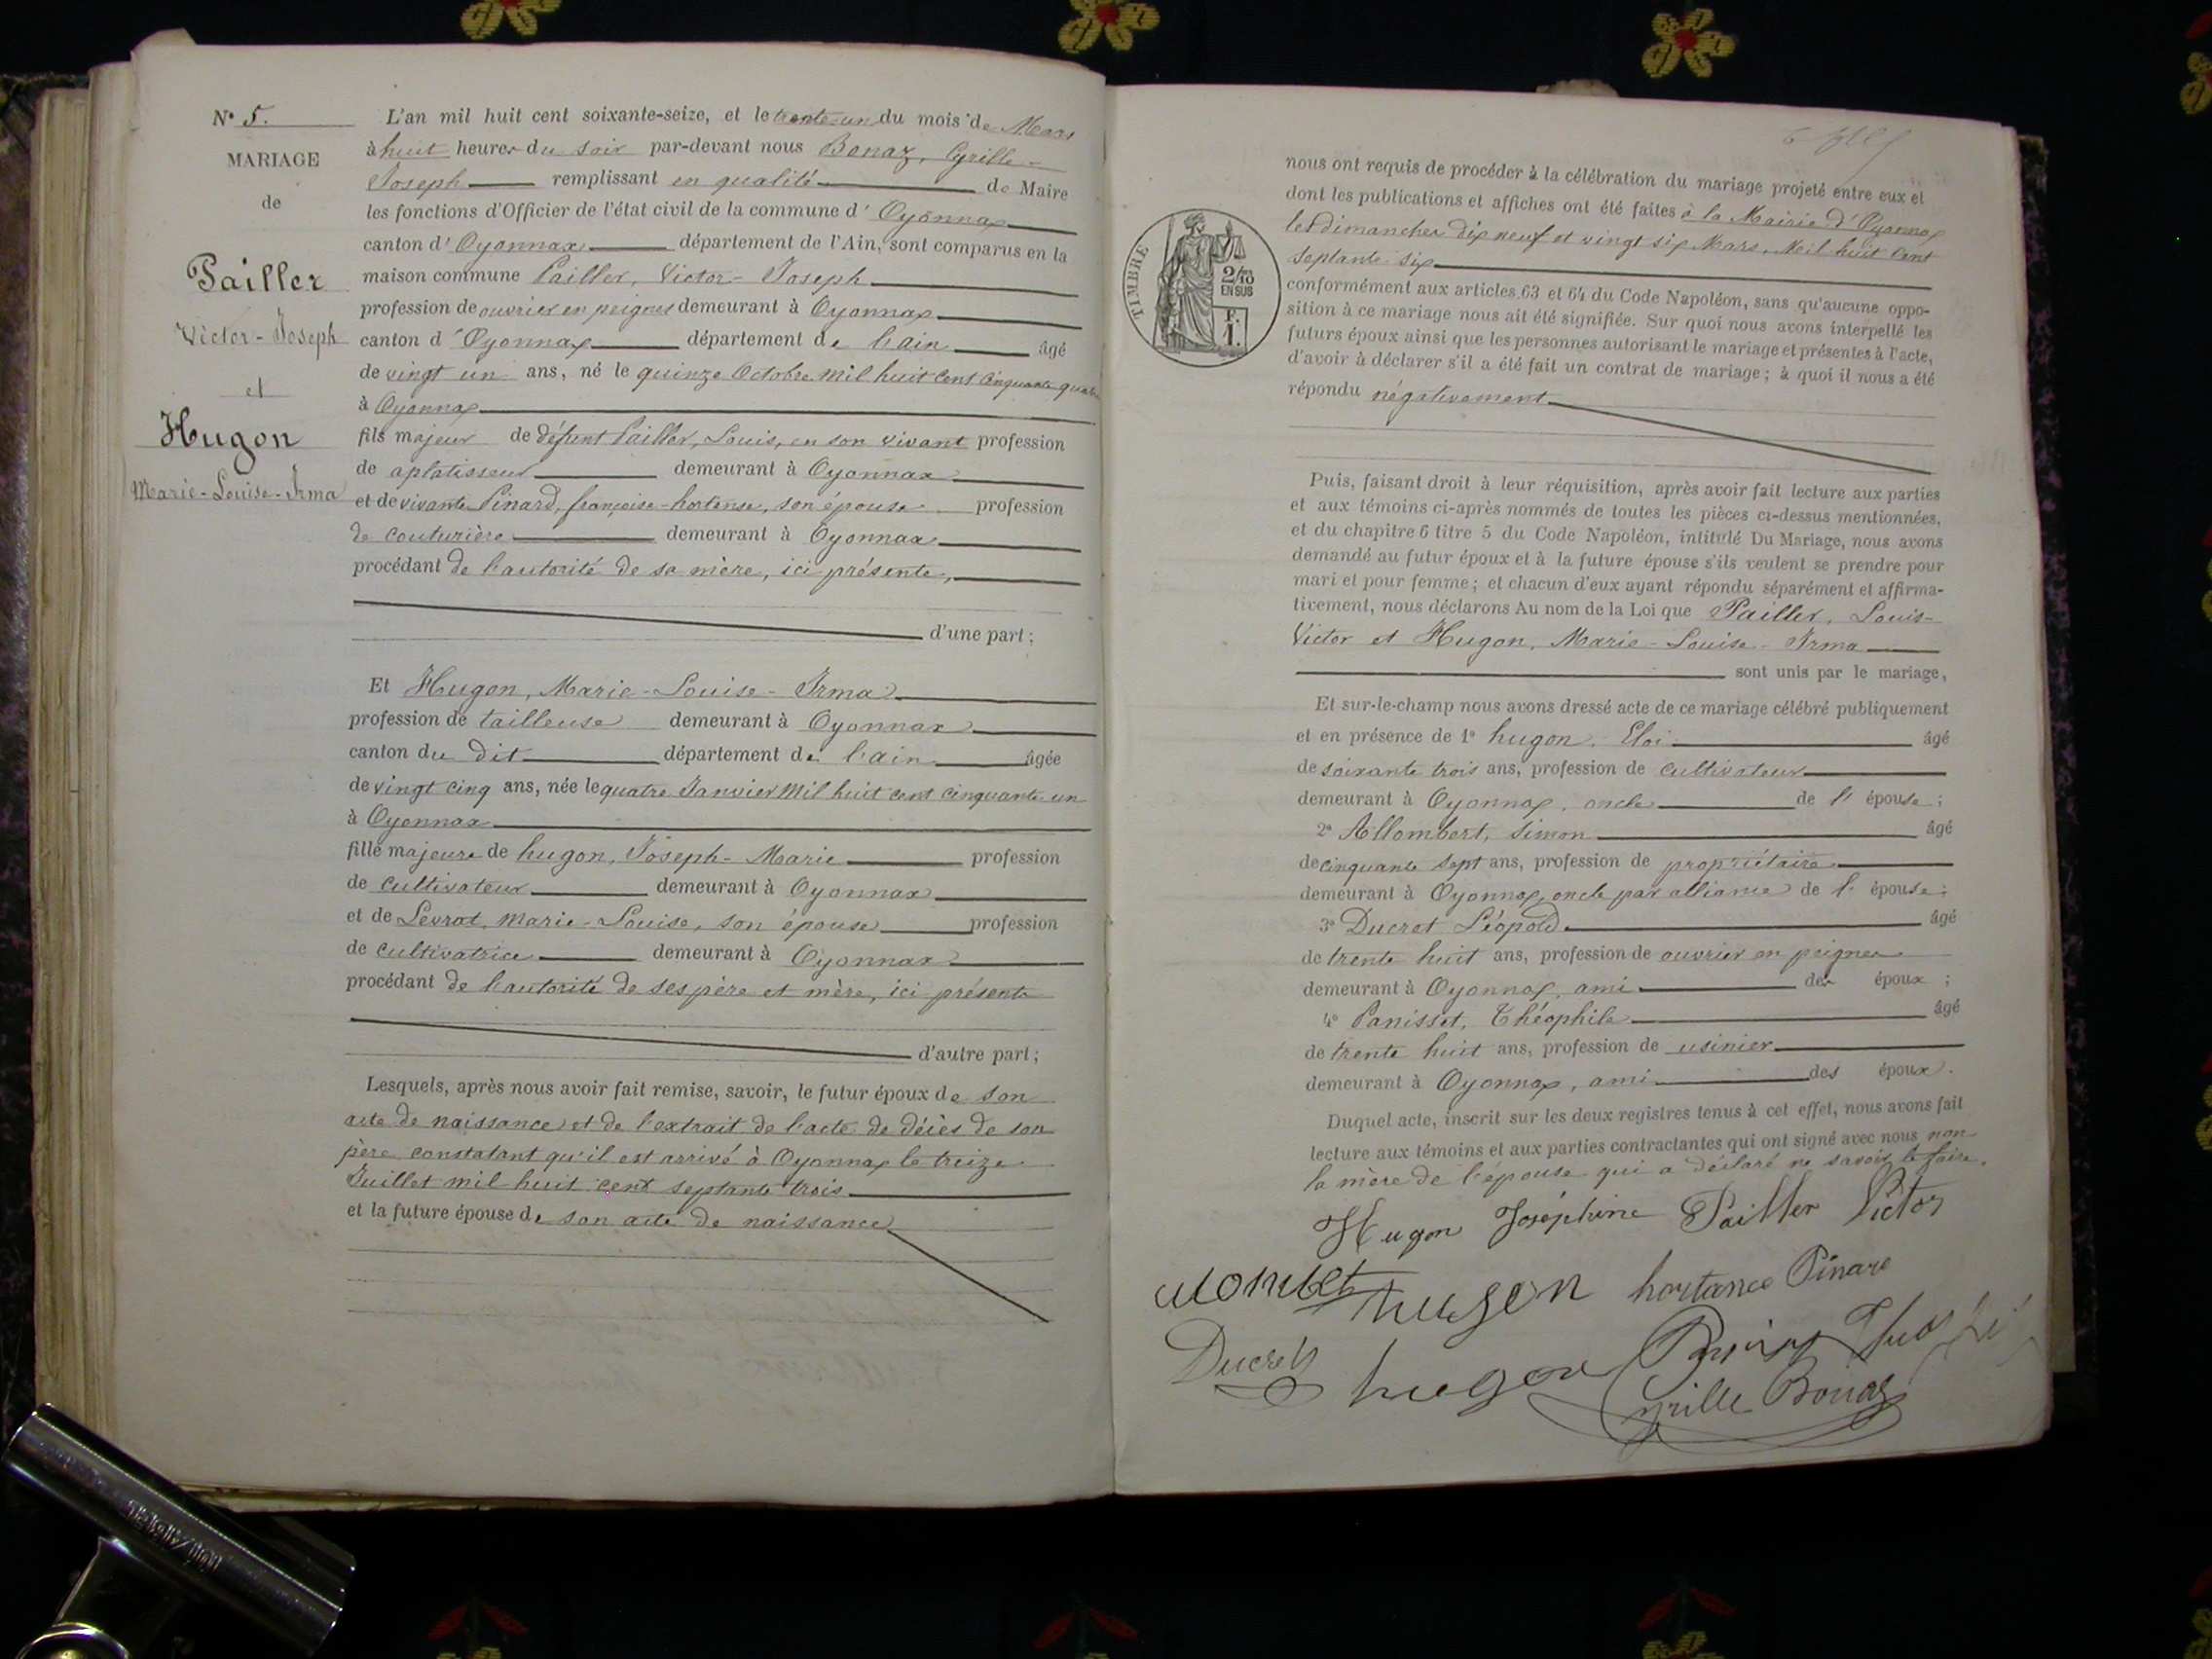 N° 5.
MARIAGE
de
Pailler
Victor-Joseph
et
Hugon
Marie-Louise-Irma
L'an mil huit cent soixante-seize, et le trente-un du mois de Mars
à huit heures du soir par-devant nous Bonaz, Cyrille-
Joseph remplissant en qualité de Maire
les fonctions d'Officier de l'état civil de la commune d'Oyonnax
canton d'Oyonnax département de l'Ain, sont comparus en la
maison commune Pailler, Victor-Joseph
profession de ouvrier en peignes demeurant à Oyonnax
canton d'Oyonnax département de l'ain âgé
de vingt un ans, né le quinze Octobre mil huit cent cinquante quatre
à Oyonnax
fils majeur de défunt Pailler, Louis, en son vivant profession
de aplatisseur demeurant à Oyonnax
et de vivante Pinard, françoise-hortense, son épouse profession
de couturière demeurant à Oyonnax
procédant de l'autorité de sa mère, ici présente,
d'une part;
Et Hugon, Marie-Louise-Irma
profession de tailleuse demeurant à Oyonnax
canton du dit département de l'ain âgée
de vingt cinq ans, née le quatre Janvier Mil huit cent cinquante-un
à Oyonnax
fille majeure de hugon, Joseph-Marie profession
de cultivateur demeurant à Oyonnax
et de Levrat, Marie-Louise, son épouse profession
de cultivatrice demeurant à Oyonnax
procédant de l'autorité de ses père et mère, ici présents
d'autre part;
Lesquels, après nous avoir fait remise, savoir, le futur époux de son
acte de naissance et de l'extrait de l'acte de décès de son
père constatant qu'il est arrivé à Oyonnax le treize
Juillet mil huit cent septante trois
et la future épouse de son acte de naissance
TIMBRE
2/10
EN SUS
F.
1.
nous ont requis de procéder à la célébration du mariage projeté entre eux et
dont les publications et affiches ont été faites à la Mairie d'Oyonnax
les dimanches dix neuf et vingt six Mars, Mil huit cent
septante-six
conformément aux articles 63 et 64 du Code Napoléon, sans qu'aucune oppo-
sition à ce mariage nous ait été signifiée. Sur quoi nous avons interpellé les
futurs époux ainsi que les personnes autorisant le mariage et présentes à l'acte,
d'avoir à déclarer s'il a été fait un contrat de mariage; à quoi il nous a été
répondu négativement
Puis, faisant droit à leur réquisition, après avoir fait lecture aux parties
et aux témoins ci-après nommés de toutes les pièces ci-dessus mentionnées,
et du chapitre 6 titre 5 du Code Napoléon, intitulé Du Mariage, nous avons
demandé au futur époux et à la future épouse s'ils veulent se prendre pour
mari et pour femme; et chacun d'eux ayant répondu séparément et affirma-
tivement, nous déclarons Au nom de la Loi que Pailler, Louis-
Victor et Hugon, Marie-Louise-Irma
sont unis par le mariage,
Et sur-le-champ nous avons dressé acte de ce mariage célébré publiquement
et en présence de 1° hugon, Eloi âgé
de soixante trois ans, profession de cultivateur
demeurant à Oyonnax, oncle de l'épouse;
2° Allombert, Simon âgé
de cinquante sept ans, profession de propriétaire
demeurant à Oyonnax, oncle par alliance de l'épouse;
3° Ducret Léopold âgé
de trente huit ans, profession de ouvrier en peignes
demeurant à Oyonnax, ami des époux;
4° Panisset, Théophile âgé
de trente huit ans, profession de usinier
demeurant à Oyonnax, ami des époux.
Duquel acte, inscrit sur les deux registres tenus à cet effet, nous avons fait
lecture aux témoins et aux parties contractantes qui ont signé avec nous non
la mère de l'épouse qui a déclaré ne savoir le faire.
Hugon Joséphine Pailler Victor
hugon hortance Pinare
Ducret hugon
Cyrille Bonaz